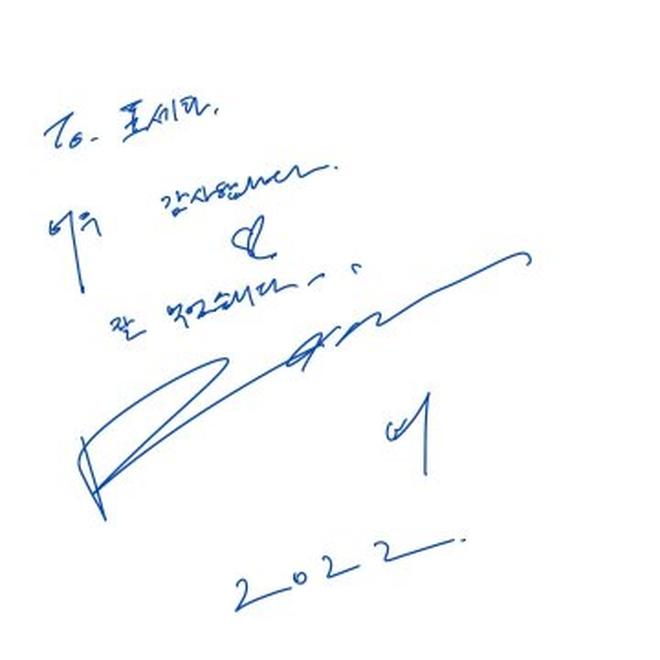 To. 포세타.
너무 감사합니다.
잘 먹었습니다~
2022.